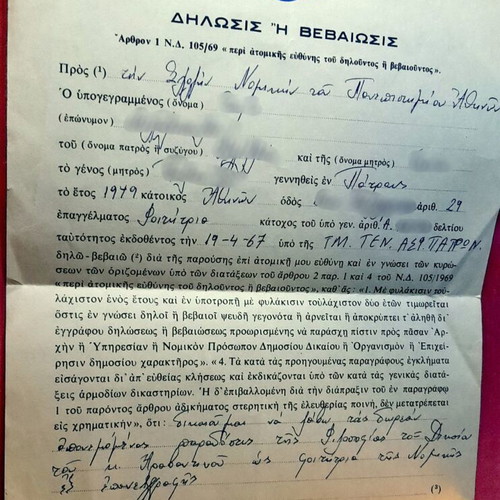 ΔΗΛΩΣΙΣ Ἢ ΒΕΒΑΙΩΣΙΣ
Ἄρθρον 1 Ν.Δ. 105/69 « περὶ ἀτομικῆς εὐθύνης τοῦ δηλοῦντος ἢ βεβαιοῦντος».
Πρὸς (¹) τὴν Σχολὴν Νομικὴν τοῦ Πανεπιστημίου Ἀθηνῶν
Ὁ ὑπογεγραμμένος (ὄνομα)
(ἐπώνυμον)
τοῦ (ὄνομα πατρὸς ἢ συζύγου) καὶ τῆς (ὄνομα μητρὸς)
τὸ γένος (μητρὸς) γεννηθεὶς ἐν Πάτραις
τὸ ἔτος 1949 κάτοικος Ἀθηνῶν ὁδὸς ἀριθ. 29
ἐπαγγέλματος Φοιτήτρια κάτοχος τοῦ ὑπὸ γεν. ἀριθ. Α. δελτίου
ταυτότητος ἐκδοθέντος τὴν 19-4-67 ὑπὸ τῆς ΤΜ. ΓΕΝ. ΑΣΦ. ΠΑΤΡΩΝ.
δηλῶ-βεβαιῶ (²) διὰ τῆς παρούσης ἐπὶ ἀτομικῇ μου εὐθύνῃ καὶ ἐν γνώσει τῶν κυρώ-
σεων τῶν ὁριζομένων ὑπὸ τῶν διατάξεων τοῦ ἄρθρου 2 παρ. 1 καὶ 4 τοῦ Ν.Δ. 105/1969
« περὶ ἀτομικῆς εὐθύνης τοῦ δηλοῦντος ἢ βεβαιοῦντος», καθ' ἅς: «1. Μὲ φυλάκισιν τοὐ-
λάχιστον ἑνὸς ἔτους καὶ ἐν ὑποτροπῇ μὲ φυλάκισιν τοὐλάχιστον δύο ἐτῶν τιμωρεῖται
ὅστις ἐν γνώσει δηλοῖ ἢ βεβαιοῖ ψευδῆ γεγονότα ἢ ἀρνεῖται ἢ ἀποκρύπτει τ' ἀληθῆ δι'
ἐγγράφου δηλώσεως ἢ βεβαιώσεως προωρισμένης νὰ παράσχῃ πίστιν πρὸς πᾶσαν Ἀρ-
χὴν ἢ Ὑπηρεσίαν ἢ Νομικὸν Πρόσωπον Δημοσίου Δικαίου ἢ Ὀργανισμὸν ἢ Ἐπιχεί-
ρησιν δημοσίου χαρακτῆρος». « 4. Τὰ κατὰ τὰς προηγουμένας παραγράφους ἐγκλήματα
εἰσάγονται δι' ἀπ' εὐθείας κλήσεως καὶ ἐκδικάζονται ὑπὸ τῶν κατὰ τὰς γενικὰς διατά-
ξεις ἁρμοδίων δικαστηρίων. Ἡ δ' ἐπιβαλλομένη διὰ τὴν διάπραξιν τοῦ ἐν παραγράφῳ
1 τοῦ παρόντος ἄρθρου ἀδικήματος στερητικὴ τῆς ἐλευθερίας ποινή, δὲν μετατρέπεται
εἰς χρηματικήν», ὅτι : δικαιοῦμαι νὰ λάβω τὰς δωρεὰν
ἀπονεμομένας παραδόσεις τῆς Φιλοσοφίας τοῦ Δικαίου
τοῦ κ. ὡς φοιτήτρια τῆς Νομικῆς
ἐξ ἐπανεγγραφῆς
(³)